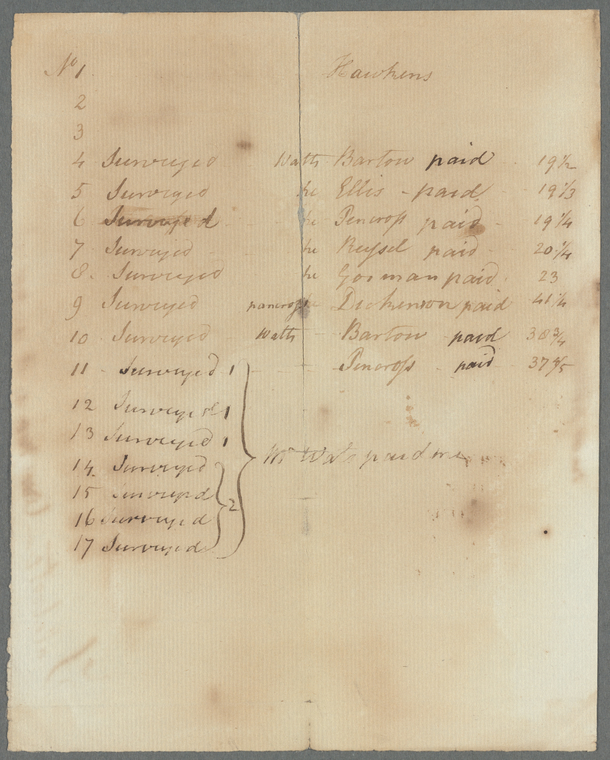 No 1 Hawkens
2
3
4 Surveyed Watts Bartow paid 19½
5 Surveyed he Ellis - paid 19⅓
6 Surveyed he Pencross paid - 19¼
7 Surveyed he Russel paid - 20¼
8. Surveyed he Gorman paid. 23
9 Surveyed pancross Dickenson paid 41¼
10 Surveyed Watts - Bartow paid 38¾
11 - Surveyed 1 - Pencross - paid - 37
12 Surveyed 1
13 Surveyed 1
14 Surveyed
15 Surveyed
16 Surveyed
17 Surveyed
2
Mr Wats paid me